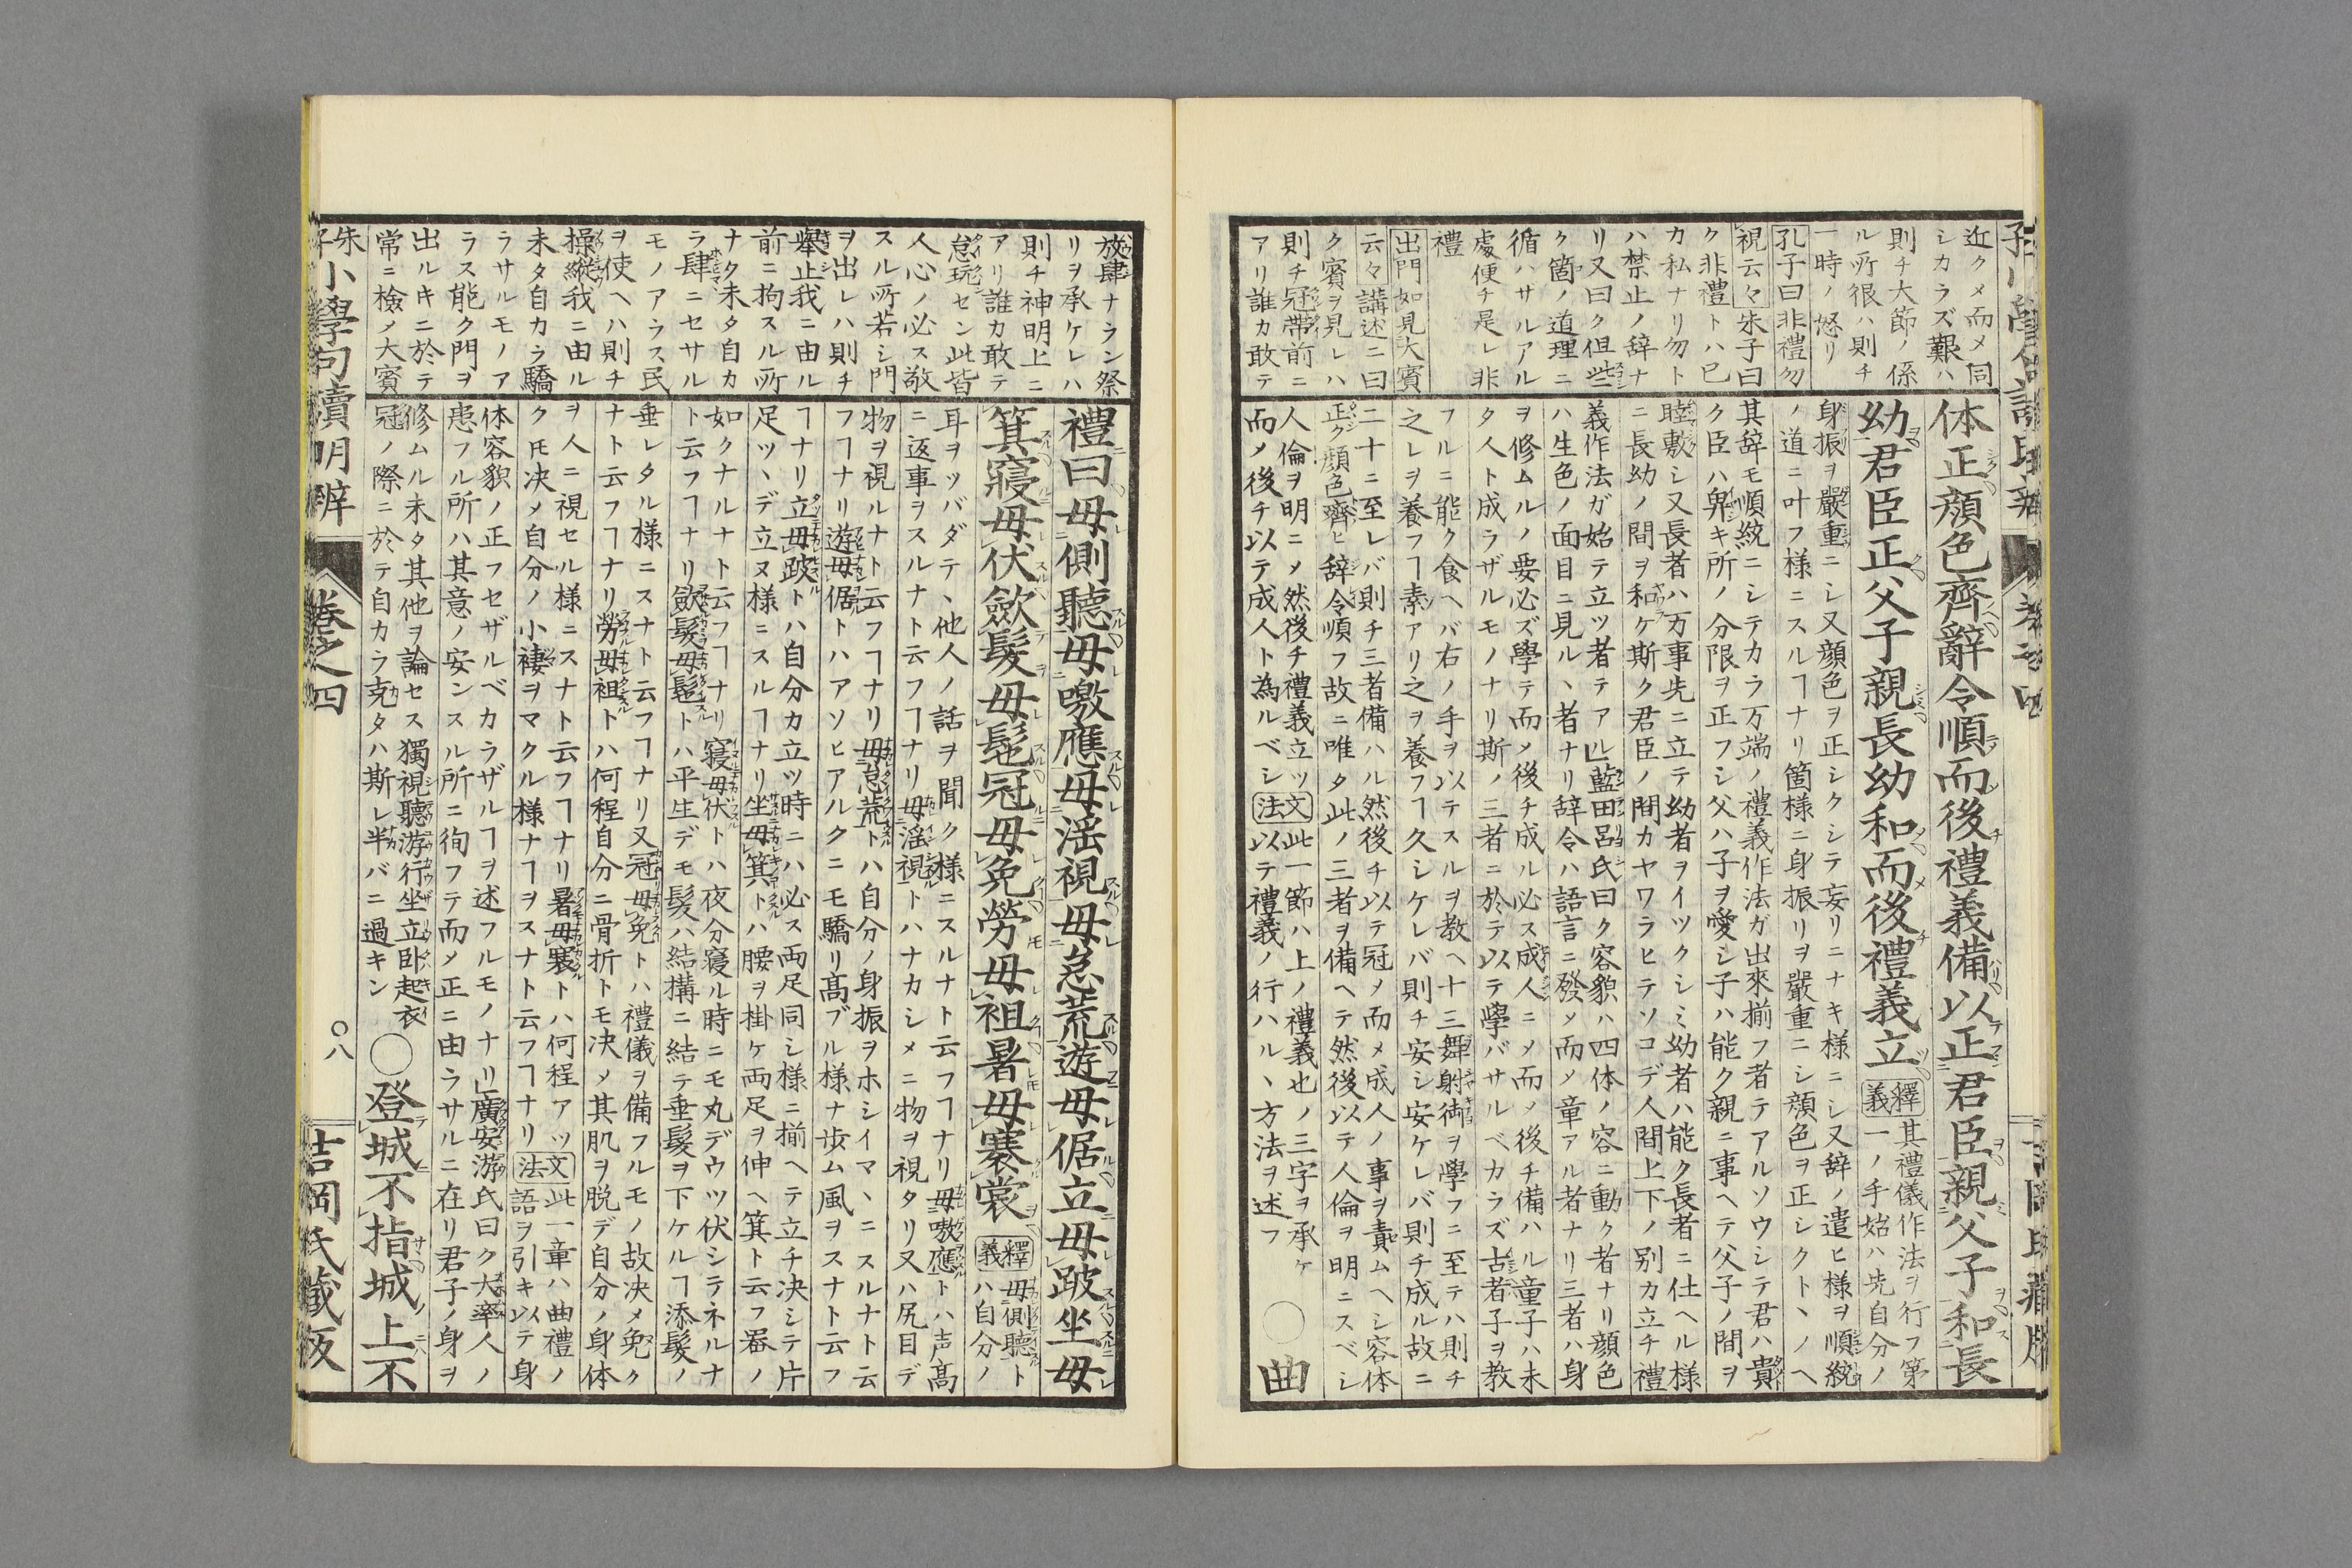 近クメ而メ同
シカラズ艱ハ
則チ大節ノ係
ル所很ハ則チ
一時ノ怒リ
孔子曰非禮勿
視云々朱子曰
ク非禮トハ已
カ私ナリ勿ト
ハ禁止ノ辞ナ
リ又曰ク但些
ク箇ノ道理ニ
循ハサルアル
處便チ是レ非
禮
出門如見大賓
云々講述ニ曰
ク賓ヲ見レハ
則チ冠帶前ニ
アリ誰カ敢テ
体正顔色齊辭令順而後禮義備以正君臣親父子和長
幼君臣正父子親長幼和而後禮義立釋義其禮儀作法ヲ行フ第
一ノ手始ハ先自分ノ
身振ヲ嚴重ニシ又顔色ヲ正シクシテ妄リニナキ様ニシ又辞ノ遣ヒ様ヲ順統
ノ道ニ叶フ様ニスルヿナリ箇様ニ身振リヲ嚴重ニシ顔色ヲ正シクトヽノヘ
其辞モ順統ニシテカラ万端ノ禮義作法ガ出來揃フ者テアルソウシテ君ハ貴
ク臣ハ卑キ所ノ分限ヲ正フシ父ハ子ヲ愛シ子ハ能ク親ニ事ヘテ父子ノ間ヲ
睦敷シ又長者ハ万事先ニ立テ幼者ヲイツクシミ幼者ハ能ク長者ニ仕ヘル様
ニ長幼ノ間ヲ和ケ斯ク君臣ノ間カヤワラヒテソコデ人間上下ノ别カ立チ禮
義作法ガ始テ立ツ者テアル藍田呂氏曰ク容貌ハ四体ノ容ニ動ク者ナリ顔色
ハ生色ノ面目ニ見ルヽ者ナリ辞令ハ語言ニ發メ而メ章アル者ナリ三者ハ身
ヲ修ムルノ要必ズ學テ而メ後チ成ル必ス成人ニメ而メ後チ備ハル童子ハ未
タ人ト成ラザルモノナリ斯ノ三者ニ於テ以テ學バサルベカラズ古者子ヲ教
フルニ能ク食ヘバ右ノ手ヲ以テスルヲ教ヘ十三舞射御ヲ學フニ至テハ則チ
之レヲ養フヿ素アリ之ヲ養フヿ久シケレバ則チ安シ安ケレバ則チ成ル故ニ
二十ニ至レバ則チ三者備ハル然後チ以テ冠メ而メ成人ノ事ヲ責ムヘシ容体
正ク顔色齊ヒ辞令順フ故ニ唯タ此ノ三者ヲ備ヘテ然後以テ人倫ヲ明ニスベシ
人倫ヲ明ニメ然後チ禮義立ツ文法此一節ハ上ノ禮義也ノ三字ヲ承ケ
而メ後チ以テ成人ト為ルベシ以テ禮義ノ行ハルヽ方法ヲ述フ
○曲
放肆ナラン祭
リヲ承ケレハ
則チ神明上ニ
アリ誰カ敢テ
怠玩セン此皆
人心ノ必ス敬
スル所若シ門
ヲ出レハ則チ
舉止我ニ由ル
前ニ拘スル所
ナク未タ自カ
ラ肆ニセサル
モノアラス民
ヲ使ヘハ則チ
操縱我ニ由ル
未タ自カラ驕
ラサルモノア
ラス能ク門ヲ
出ルキニ於テ
常ニ檢メ大賓
禮曰毋側聽毋噭應毋淫視毋怠荒遊毋倨立毋跛坐毋
箕寢毋伏斂髮毋髢冠毋免勞毋袒暑毋褰裳釋義毋側聽ト
ハ自分ノ
耳ヲツバダテヽ他人ノ話ヲ聞ク様ニスルナト云フヿナリ毋噭應トハ声高
ニ返事ヲスルナト云フヿナリ毋淫視トハナカシメニ物ヲ視タリ又ハ尻目デ
物ヲ視ルナト云フヿナリ毋怠荒トハ自分ノ身振ヲホシイマヽニスルナト云
フヿナリ遊毋倨トハアソヒアルクニモ驕リ髙ブル様ナ歩ム風ヲスナト云フ
ヿナリ立毋跛トハ自分カ立ツ時ニハ必ス両足同シ様ニ揃ヘテ立チ决シテ片
足ツヽデ立ヌ様ニスルヿナリ坐毋箕トハ腰ヲ掛ケ両足ヲ伸ヘ箕ト云フ器ノ
如クナルナト云フヿナリ寢毋伏トハ夜分寢ル時ニモ丸デウツ伏シテネルナ
ト云フヿナリ斂髮毋髢トハ平生デモ髮ハ結搆ニ結テ垂髮ヲ下ケルヿ添髮ノ
垂レタル様ニスナト云フヿナリ又冠毋免トハ禮儀ヲ備フルモノ故决メ免ク
ナト云フヿナリ勞毋袒トハ何程自分ニ骨折トモ决メ其肌ヲ脱デ自分ノ身体
ヲ人ニ視セル様ニスナト云フヿナリ暑毋褰トハ何程アツ
クトモ决メ自分ノ小褄ヲマクル様ナヿヲスナト云フヿナリ文法此一章ハ曲禮ノ
語ヲ引キ以テ身
体容貌ノ正フセザルベカラザルヿヲ述フルモノナリ廣安游氏曰ク大率人ノ
患フル所ハ其意ノ安ンスル所ニ徇フテ而メ正ニ由ラサルニ在リ君子ノ身ヲ
修ムル未タ其他ヲ論セス獨視聽游行坐立卧起衣
冠ノ際ニ於テ自カラ克タハ斯レ半バニ過キン
○登城不指城上不
朱子小學句讀明辨
卷之四
○八
吉岡氏藏版